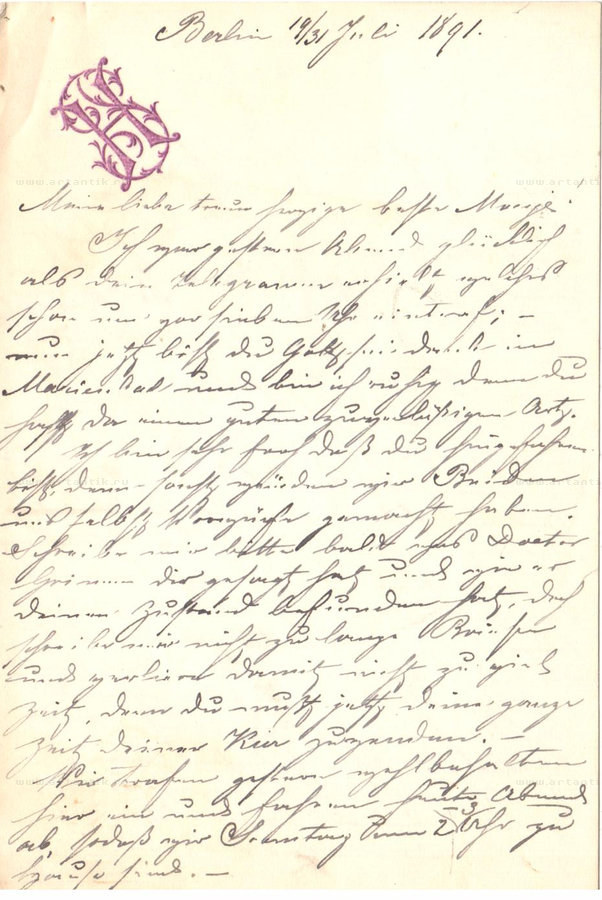 Berlin 19/31 Juli 1891.
Meine liebe treue herzige beste
Ich war gestern Abend glücklich
als dein Telegramm erhielt welches
schon um vor sieben Uhr eintraf; –
nun jetzt bist du Gott sei dank in
Marienbad und bin ich ruhig denn du
hast da einen guten zuverläßigen Artz.
Ich bin sehr froh daß du hingefahren
bist, denn sonst würden wir Beiden
uns selbst Vorwürfe gemacht haben.
Schreibe mir bitte bald was Doctor
Grimm dir gesagt hat und wie er
deinen Zustand befunden hat, doch
schreibe mir nicht zu lange Briefe
und verliere damit nicht zu viel
Zeit, denn du mußt jetzt deine ganze
Zeit deiner Kur zuwenden. –
Wir trafen gestern wohlbehalten
hier ein und fahren heute Abend
ab, sodaß wir Sonntag um 2 Uhr zu
Hause sind. –
www.artantik.ru